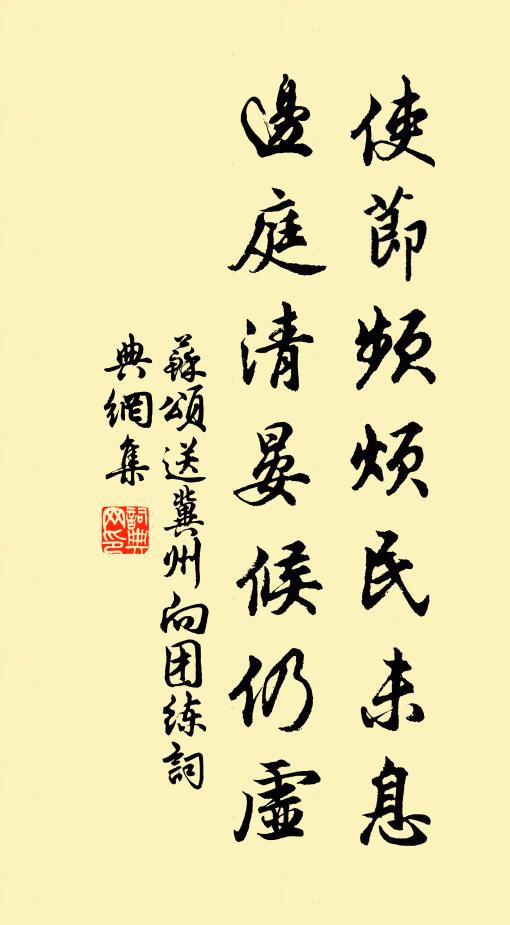 使節頻煩民未息
邊庭清晏候仍虛
蘇頌送冀州向团练詞
典網集
詞典网印